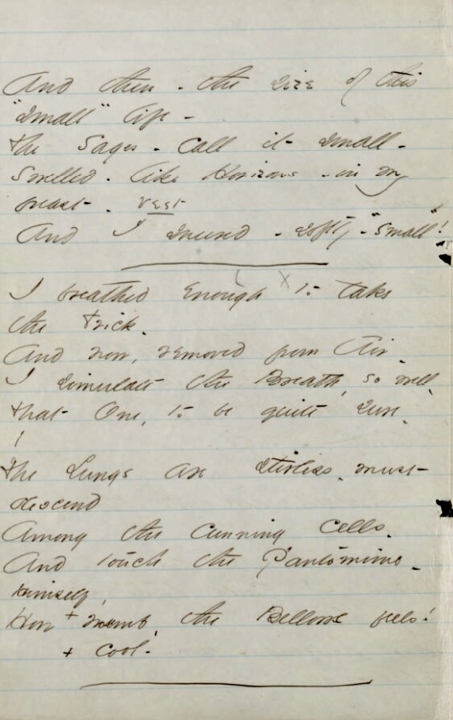 And then - the size of this
"small" life -
The Sages - call it small -
Swelled - like Horizons - in my
breast - vest
And I sneered - softly - "small"!
I breathed enough to take
the Trick -
And now, removed from Air -
I simulate the Breath, so well,
that One, to be quite sure,
The Lungs are stirless - must
descend
Among the cunning cells -
And touch the Pantomime -
himself,
How + numb, the Bellows feels!
+ cool -